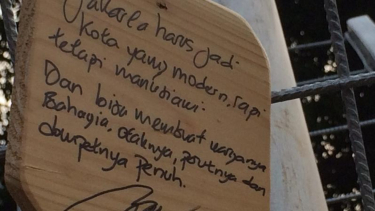 Jakarta harus jadi
Kota yang modern, rapi
tetapi manusiawi.
Dan bisa membuat warganya
Bahagia, otaknya, perutnya dan
dompetnya Penuh.